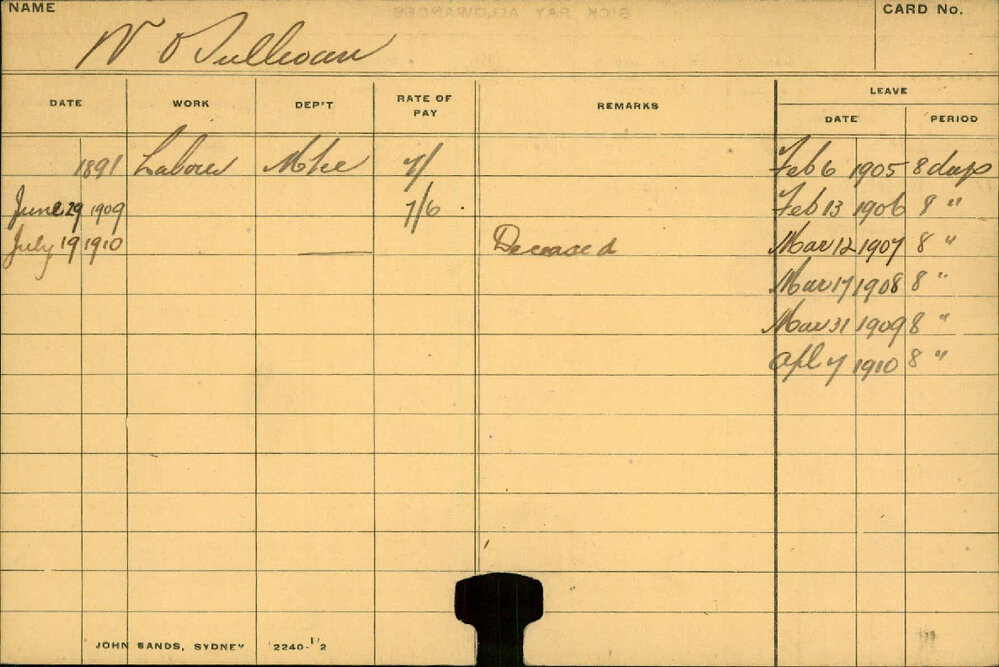 NAME
CARD No.
O'Sullivan
DATE WORK DEP'T RATE OF PAY REMARKS LEAVE
DATE PERIOD
1891 Labour 7/ Feb 6 1905 8 days
June 29 1909 7/6 Feb 13 1906 8 "
July 19 1910 — Deceased Mar 12 1907 8 "
Mar 17 1908 8 "
Mar 31 1909 8 "
Apl 7 1910 8 "
JOHN SANDS, SYDNEY 2240-1'2